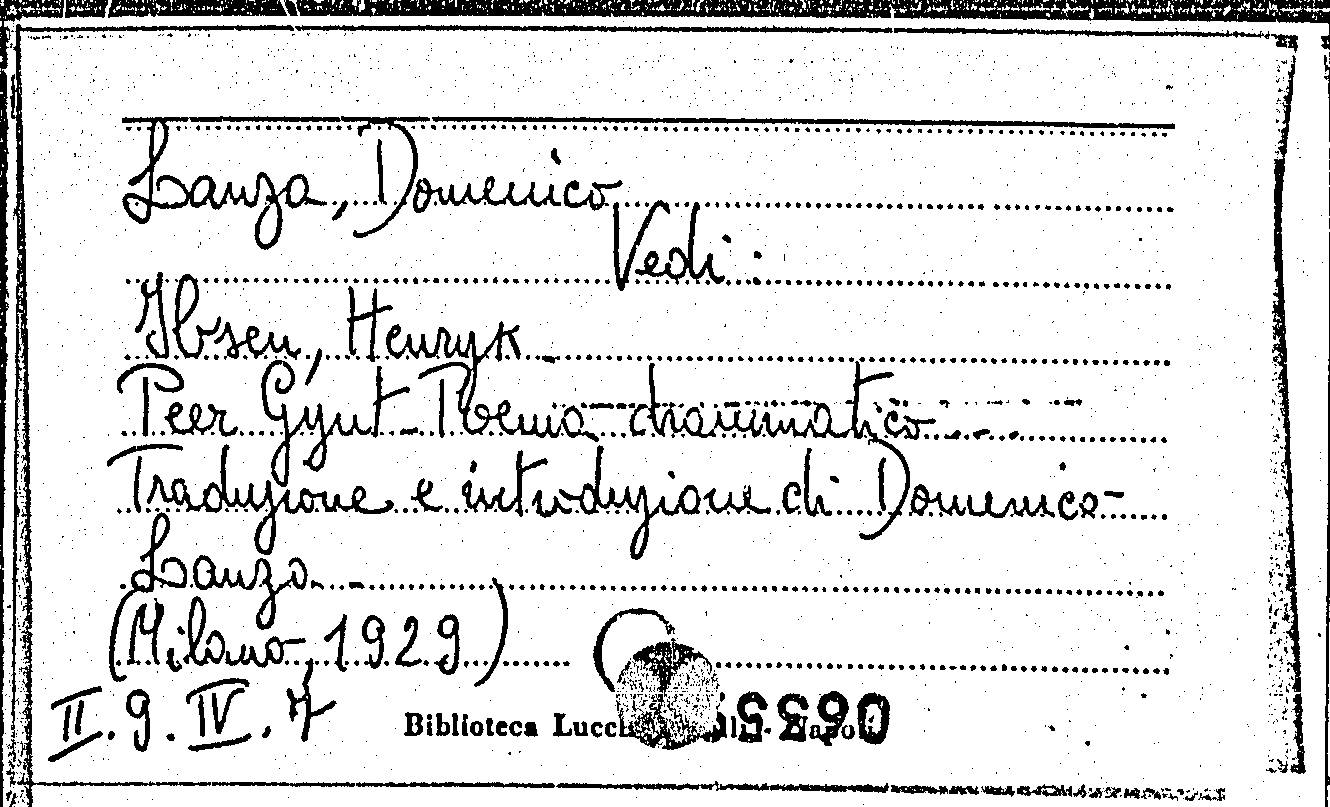 Lanza, Domenico
Vedi:
Ibsen, Henryk -
Peer Gynt - Poema drammatico - - -
Traduzione e introduzione di Domenico
Lanza. -
(Milano, 1929)
II. 9. IV. 7
Biblioteca Napoli